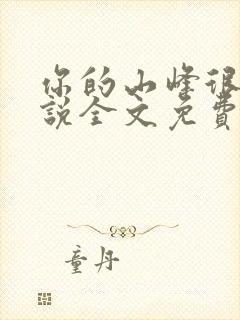 你的山峰很
說全文免費
童丹